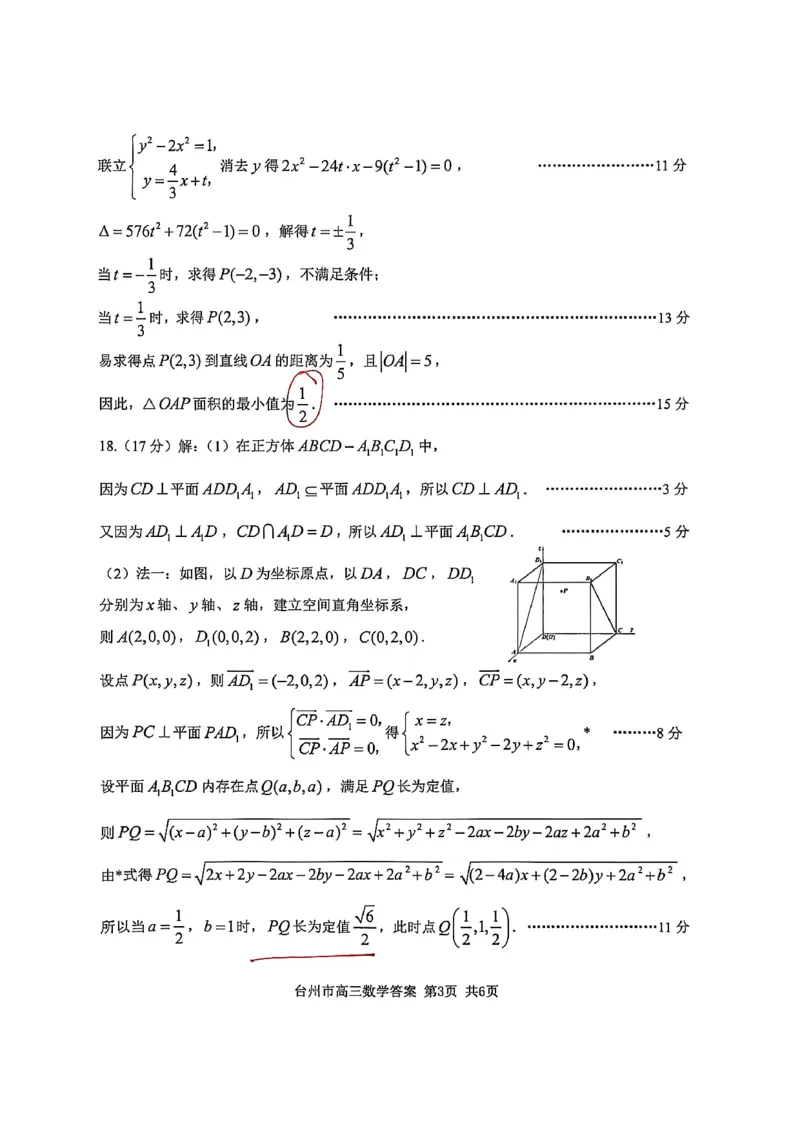 联立{y²−2x²=1, y=4/3 x+t, 消去y得2x²−24t·x−9(t²−1)=0, ························11分
Δ=576t²+72(t²−1)=0, 解得t=±1/3,
当t=−1/3时, 求得P(−2,−3), 不满足条件;
当t=1/3时, 求得P(2,3), ························13分
易求得点P(2,3)到直线OA的距离为1/5, 且|OA|=5,
因此, △OAP面积的最小值为1/2. ························15分
18.(17分)解:(1)在正方体ABCD−A₁B₁C₁D₁中,
因为CD⊥平面ADD₁A₁, AD₁⊆平面ADD₁A₁, 所以CD⊥AD₁. ························3分
又因为AD₁⊥A₁D, CD⋂A₁D=D, 所以AD₁⊥平面A₁B₁CD. ·····················5分
(2)法一:如图, 以D为坐标原点, 以DA, DC, DD₁
分别为x轴、y轴、z轴, 建立空间直角坐标系,
则A(2,0,0), D₁(0,0,2), B(2,2,0), C(0,2,0).
D₁ C₁
A₁ B₁
P
D(O) C
A B
设点P(x,y,z), 则AD₁→=(−2,0,2), AP→=(x−2,y,z), CP→=(x,y−2,z),
因为PC⊥平面PAD₁, 所以{CP→·AD₁→=0, CP→·AP→=0, 得{x=z, x²−2x+y²−2y+z²=0, * ·········8分
设平面A₁B₁CD内存在点Q(a,b,a), 满足PQ长为定值,
则PQ=√((x−a)²+(y−b)²+(z−a)²)=√(x²+y²+z²−2ax−2by−2az+2a²+b²),
由*式得PQ=√(2x+2y−2ax−2by−2ax+2a²+b²)=√((2−4a)x+(2−2b)y+2a²+b²),
所以当a=1/2, b=1时, PQ长为定值√6/2, 此时点Q(1/2,1,1/2). ···························11分
台州市高三数学答案 第3页 共6页